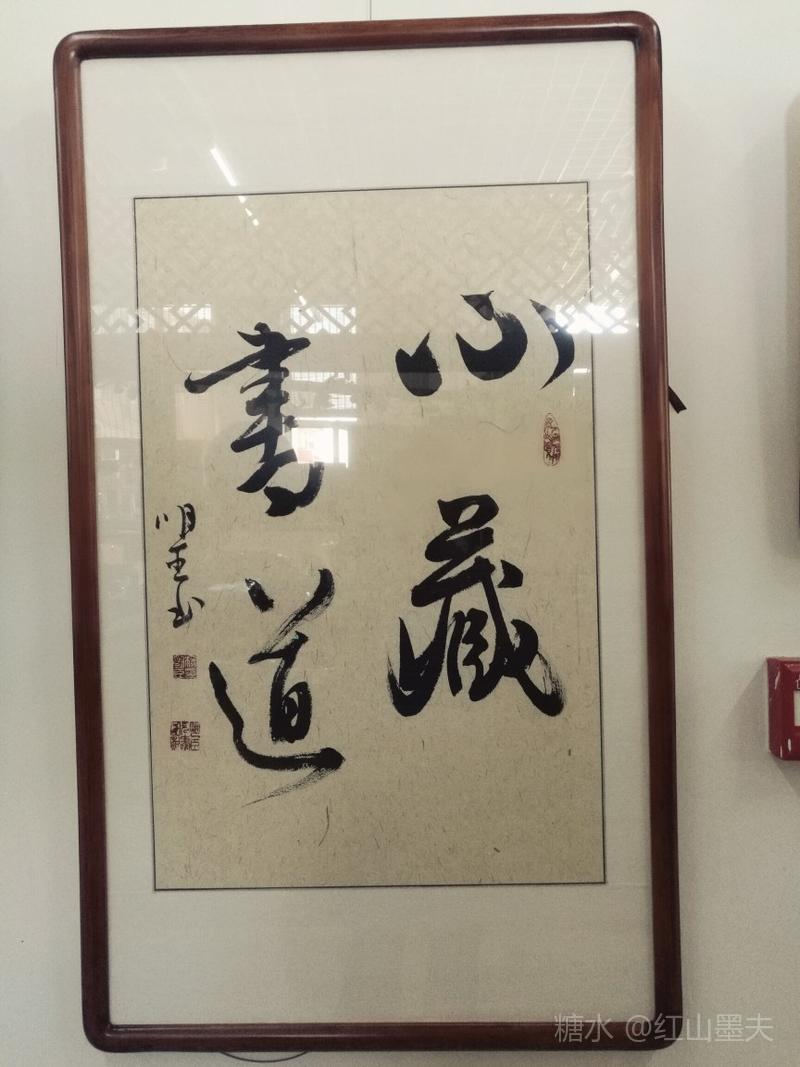 心藏
書道
明
糖水 @红山墨夫